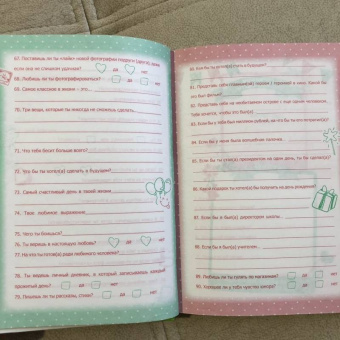 67. Поставишь ли ты «лайк» новой фотографии подруги (друга), даже
если она не слишком удачная? да нет
68. Любишь ли ты фотографироваться? да нет
69. Самое классное в жизни – это
70. Три вещи, которые ты никогда не сможешь сделать
71. Что тебя бесит больше всего?
72. Что бы ты хотел(а) сделать в будущем?
73. Самый счастливый день в твоей жизни
74. Твое любимое выражение
75. Чего ты боишься?
76. Ты веришь в настоящую любовь? да нет
77. На что ты готов(а) ради любимого человека?
78. Ты ведешь личный дневник, в который записываешь каждый
прожитый день? да нет
79. Пишешь ли ты рассказы, стихи? да нет
80. Кем бы ты хотел(а) стать в будущем?
81. Представь себя главной героиней в кино. Какой бы
это был фильм?
82. Представь себя на необитаемом острове с еще одним человеком.
Тебе хочется, чтобы это был(а)
83. Если бы у тебя был миллион рублей, на что бы ты его потратил(а)?
84. Если бы у меня была волшебная палочка,
85. Если бы ты стал(а) президентом на один день, то бы сделал(а)?
86. Какой подарок ты хотел(а) бы получить на день рождения?
87. Если бы я был(а) директором школы,
88. Если бы я был(а) учителем,
89. Любишь ли ты гулять по магазинам? да нет
90. Хорошее ли у тебя чувство юмора? да нет